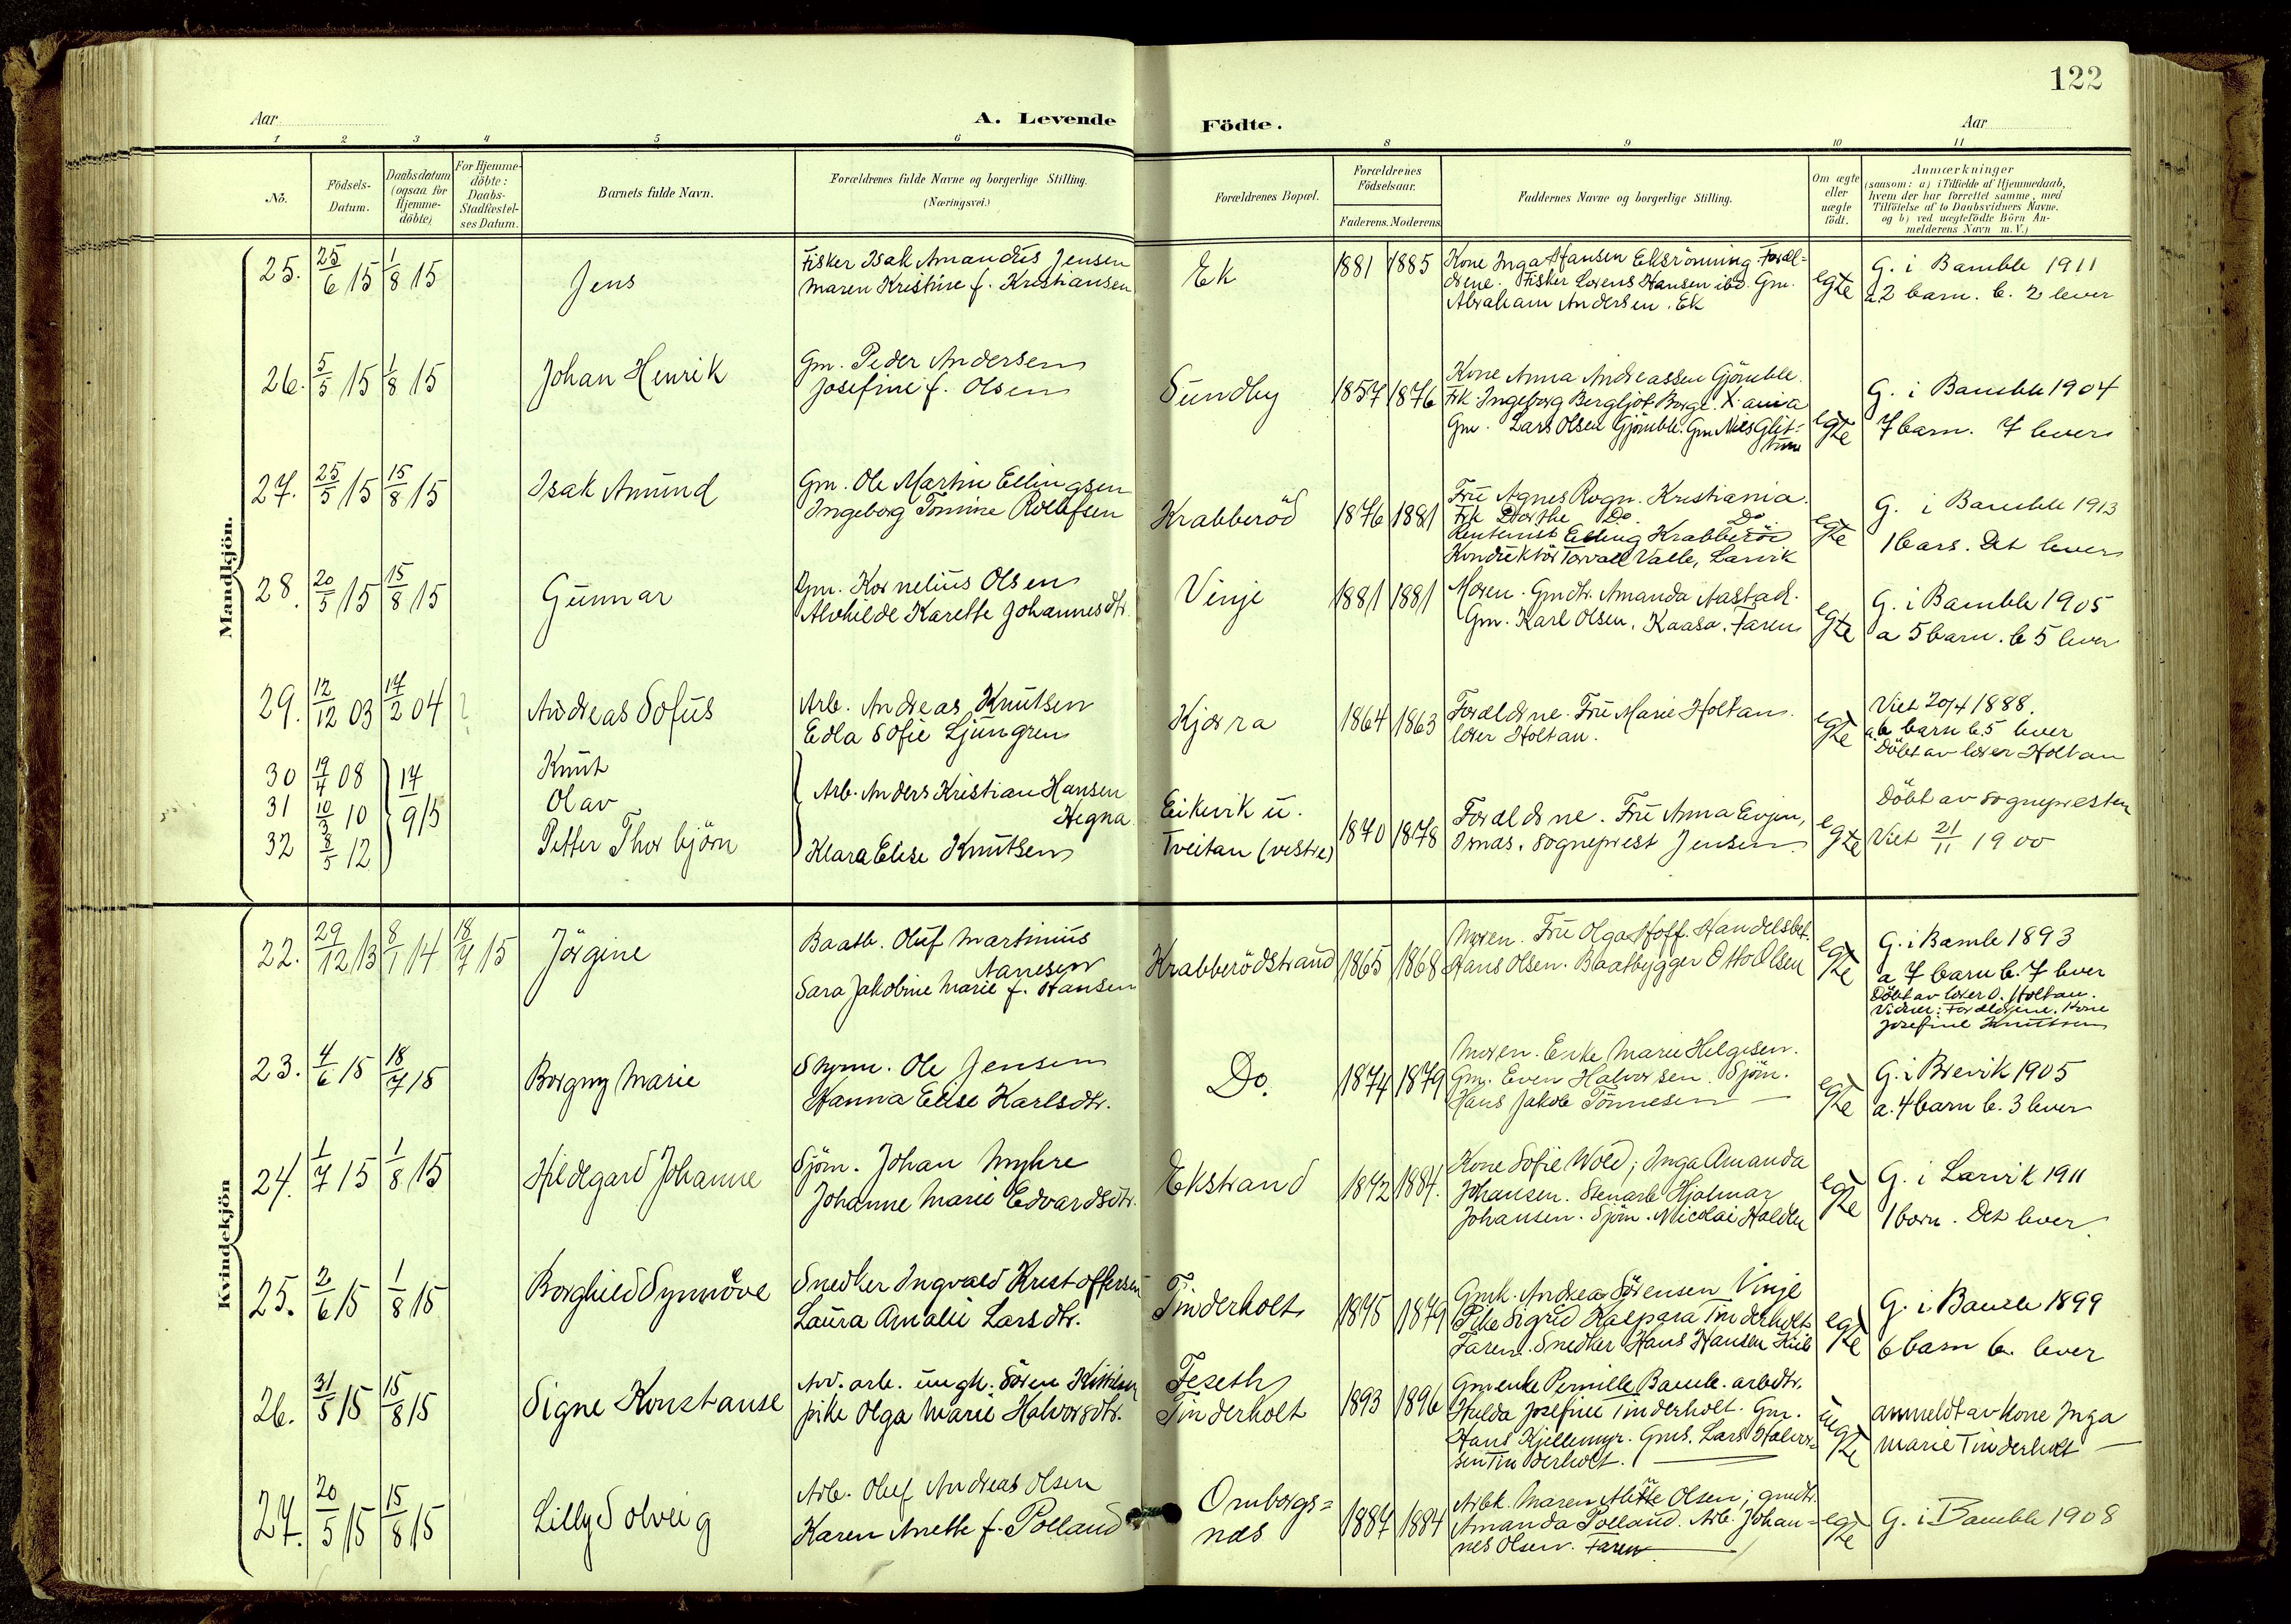 122
Aar
A. Levende
Födte.
Aar
1 2 3 4 5 6 8 9 10 11
No.
Födsels-Datum.
Daabsdatum (ogsaa for Hjemme-döbte)
For Hjemme-döbte: Daabs-Stadfæstel-ses Datum.
Barnets fulde Navn.
Forældrenes fulde Navne og borgerlige Stilling. (Næringsvei.)
Forældrenes Bopæl.
Forældrenes Födselsaar.
Faderens. Moderens
Faddernes Navne og borgerlige Stilling.
Om ægte eller uægte födt.
Anmærkninger
(saasom: a) i Tilfælde af Hjemmedaab, hvem der har forrettet samme, med Tilföielse af to Daabsvidners Navne. og b) ved uægtefödte Börn An-melderens Navn m. V.)
Mandkjön.
25. 25/6 15 1/8 15 Jens
Fisker Isak Amandus Jensen
Maren Kristine f. Kristiansen
Ek 1881 1885
Kone Inga Hansen Eksrönning. Foræl-
drene. Fisker Lorens Hansen ibd. Gm.
Abraham Andersen. Ek
egte
G. i Bamble 1911
a. 2 barn. b. 2 lever
26. 5/5 15 1/8 15 Johan Henrik
Gm. Peder Andersen
Josefine f. Olsen
Sundby 1857 1876
Kone Anna Andreassen Gjömble.
Frk. Ingeborg Bergljot Borge. X.ania
Gm. Lars Olsen Gjömble. Gm Nils Glit-
tum
egte
G. i Bamble 1904
7 barn. 7 lever
27. 25/5 15 15/8 15 Isak Amund
Gm. Ole Martin Ellingsen
Ingeborg Tomine Rollefsen
Krabberöd 1876 1881
Fru Agnes Rogn. Kristiania.
Frk Dorthe Do. Do.
Rentenist Elling Krabberöd
Konduktör Torvall Valle, Larvik
egte
G. i Bamble 1913
1 bars. Det lever
28. 20/5 15 15/8 15 Gunnar
Gm. Kornelius Olsen
Alvhilde Karette Johannesdtr.
Vinje 1881 1881
Moren. Gmdtr. Amanda Aastad.
Gm. Karl Olsen, Kaasa. Faren
egte
G. i Bamble 1905
a 5 barn. b 5 lever
29. 12/12 03 14/2 04 Andreas Sofus
Arb. Andreas Knutsen
Edla Sofie Ljungren
Kjörra 1864 1863
Forældrene. Fru Marie Holtan.
lærer Holtan.
egte
Viet 20/4 1888.
a 6 barn b. 5 lever
Döbt av lærer Holtan
30 19/4 08 Knut
31 10/3 10 Olav
32 8/5 12 Petter Thorbjörn
14/9 15
Arb. Anders Kristian Hansen
Hegna
Klara Elise Knutsen
Eikvik u.
Tveitan (vestre)
1870 1878
Forældrene. Fru Anna Evjen,
Ornæs. Sogneprest Jensen
egte
Döbt av sognepresten
Viet 21/11 1900
Kvindekjön
22. 29/12 13 8/1 14 18/7 15 Jörgine
Baatb. Oluf Martinius
Aanesen
Sara Jakobine Marie f. Hansen
Krabberödstrand 1865 1868
Moren. Fru Olga Hoff. Handelsbet.
Hans Olsen. Baatbygger Otto Olsen
egte
G. i Bamle 1893
a 7 barn b. 7 lever
Döbt av lærer O. Holtan.
Vidner: Forældrene. Kone
Josefine Knutsen
23. 4/6 15 18/7 15 Borgny Marie
Styrm. Ole Jensen
Hanna Elise Karlsdtr.
Do. 1874 1879
Moren. Enke Marie Helgesen.
Gm. Even Halvorsen. Sjöm.
Hans Jakob Tönnesen
egte
G. i Brevik 1905
a. 4 barn b. 3 lever
24. 1/7 15 1/8 15 Hildegard Johanne
Sjöm. Johan Myhre
Johanne Marie Edvardsdtr.
Ekstrand 1892 1884.
Kone Sofie Wold; Inga Amanda
Johansen. Stenarb Hjalmar
Johansen. Sjöm. Nicolai Halden
egte
G. i Larvik 1911
1 barn. Det lever.
25. 2/6 15 1/8 15 Borghild Synnöve
Snedker Ingvald Kristoffersen
Laura Amalie Larsdtr.
Tinderholt 1875 1879
Gmk. Andrea Sörensen Vinje
Pike Sigrid Kaspara Tinderholt
Faren. Snedker Hans Hansen
egte
G. i Bamle 1899
6 barn 6. lever
26. 31/5 15 15/8 15 Signe Konstanse
Av. arb. ungk. Sören Kittilsen
pike Olga Marie Halvorsdtr.
Feseth
Tinderholt
1893 1896
Gmenke Pernille Bamle. arbdtr.
Hulda Josefine Tinderholt. Gm.
Hans Kjellemyr. Gms. Lars Halvor-
sen Tinderholt.
uegte
anmeldt av kone Inga
Marie Tinderholt
27. 20/5 15 15/8 15 Lilly Solveig
Arb. Oluf Andreas Olsen
Karen Anette f. Polland
Omborgs=
næs
1887 1884
Arbk. Maren Alette Olsen; gmdtr.
Amanda Polland. Arb. Johan-
nes Olsen. Faren
egte
G. i Bamble 1908